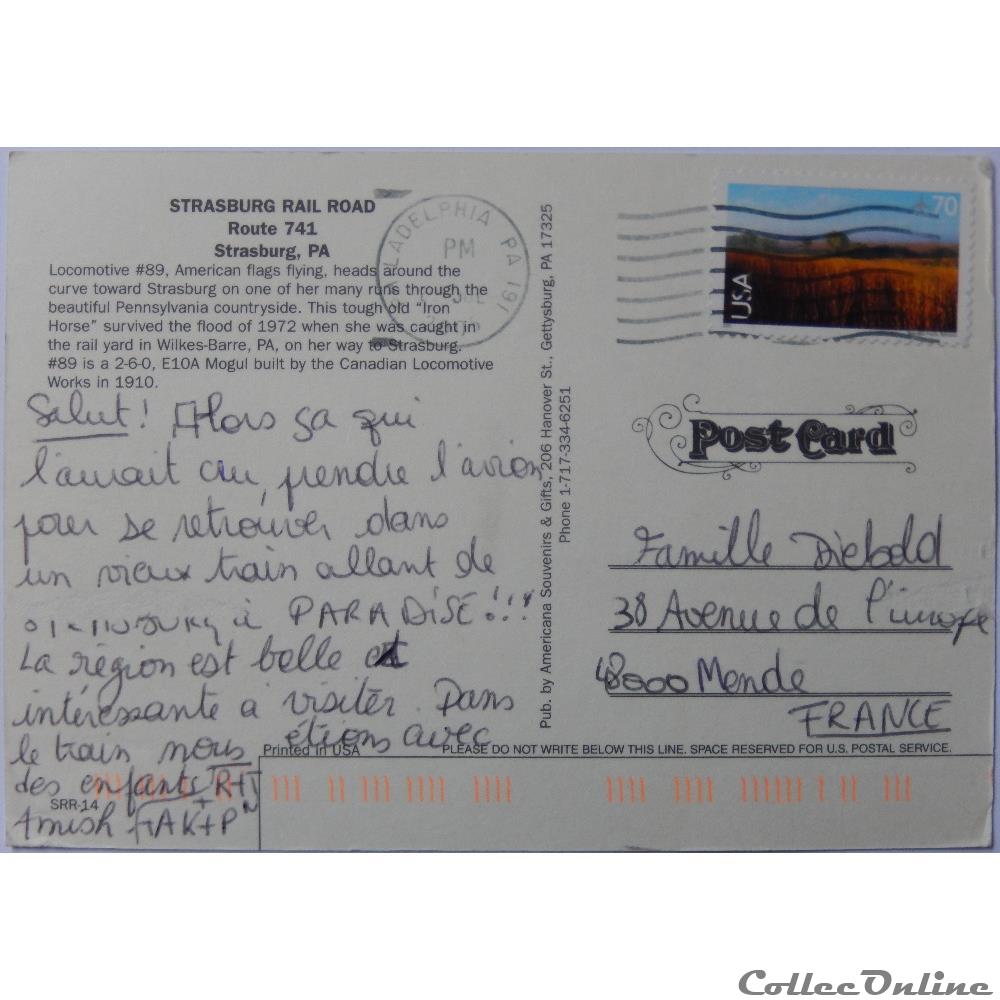 STRASBURG RAIL ROAD
Route 741
Strasburg, PA
Locomotive #89, American flags flying, heads around the
curve toward Strasburg on one of her many runs through the
beautiful Pennsylvania countryside. This tough old “Iron
Horse” survived the flood of 1972 when she was caught in
the rail yard in Wilkes-Barre, PA, on her way to Strasburg.
#89 is a 2-6-0, E10A Mogul built by the Canadian Locomotive
Works in 1910.
Salut! Alors ça qui
l'aurait cru, prendre l'avion
pour se retrouver dans
un vieux train allant de
à PARADISE!!!
La région est belle et
intéressante à visiter. Dans
le train nous étions avec
des enfants
Amish
SRR-14
Printed in USA
Pub. by Americana Souvenirs & Gifts, 206 Hanover St., Gettysburg, PA 17325
Phone 1-717-334-6251
LADELPHIA PA 191
PM
70
USA
Post Card
Famille Diebold
38 Avenue de l'
48000 Mende
FRANCE
PLEASE DO NOT WRITE BELOW THIS LINE. SPACE RESERVED FOR U.S. POSTAL SERVICE.
CollecOnline